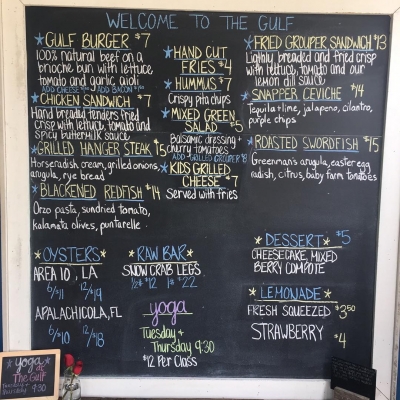 WELCOME TO THE GULF
GULF BURGER $7
100% natural beef on a
brioche bun with lettuce
tomato and garlic aioli
ADD CHEESE ADD BACON
CHICKEN SANDWICH $7
Hand breaded tenders fried
crisp with lettuce, tomato and
spicy buttermilk sauce
GRILLED HANGER STEAK $15
Horseradish cream, grilled onions,
arugula, rye bread
BLACKENED REDFISH $14
Orzo pasta, sundried tomato,
kalamata olives, puntarelle
HAND CUT
FRIES $4
HUMMUS $7
Crispy pita chips
MIXED GREEN
SALAD $5
Balsamic dressing +
cherry tomatoes
ADD GRILLED GROUPER $8
KIDS GRILLED
CHEESE $7
Served with fries
FRIED GROUPER SANDWICH $13
Lightly breaded and fried crisp
with lettuce, tomato and our
lemon dill sauce
SNAPPER CEVICHE $14
Tequila + lime, jalapeno, cilantro,
purple chips
ROASTED SWORDFISH $15
Greenman's arugula, easter egg
radish, citrus, baby farm tomatoes
OYSTERS
AREA 10, LA
6/$11 12/$19
APALACHICOLA, FL
6/$10 12/$18
RAW BAR
SNOW CRAB LEGS
1/2# $12 1# $22
yoga
Tuesday +
Thursday 9:30
$12 Per Class
DESSERT $5
CHEESECAKE, MIXED
BERRY COMPOTE
LEMONADE
FRESH SQUEEZED $3.50
STRAWBERRY $4
yoga
at
The Gulf
Tuesday +
Thursday 9:30